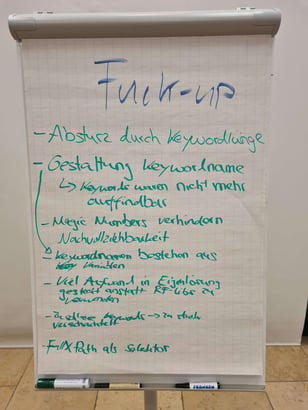 Fuck-up
- Absturz durch Keywordlänge
- Gestaltung Keywordname
↳ Keywords waren nicht mehr
auffindbar
- Magic Numbers verhindern
Nachvollziehbarkeit
- Keywordnamen bestehen aus
Variablen
- Viel Aufwand in Eigenlösung
gesteckt anstatt RF-Libs zu
verwenden
- Zu viele Keywords → zu stark
verschachtelt
- Full XPath als Selektor